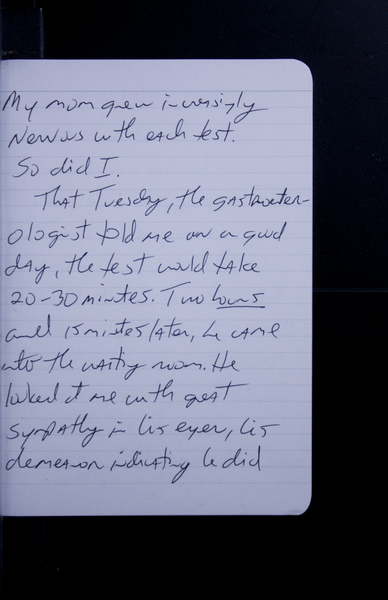 My mom grew increasingly
nervous with each test.
So did I.
That Tuesday, the gastroenter-
ologist told me on a good
day, the test would take
20-30 minutes. Two hours
and 15 minutes later, he came
into the waiting room. He
looked at me with great
sympathy in his eyes, his
demeanor indicating he did